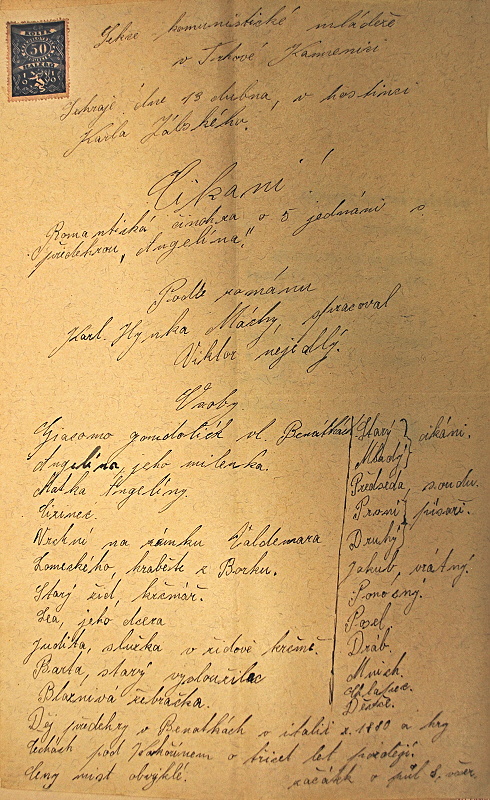 Sekce komunistické mládeže
v Trhové Kamenici
Sehraje dne 13 dubna, v hostinci
Karla Zálského.
Cikáni!
Romantická činohra o 5 jednání s
předehrou, „Angelina."
Podle románu
Karl. Hynka Máchy, spracoval
Viktor nejedlý.
Osoby
Giacomo gondoliér vl. Benátkách
Angelina, jeho milenka.
Matka Angeliny.
Vrchní na zámku Valdemara
Lomeckého, hraběte z Borku.
Starý žid, krčmář.
Lea, jeho dcera
Judita, služka v židově krčmě.
Barta, starý vysloužilec
Bláznivá žebračka.
Starý
Mladý
cikáni.
Předseda, soudu.
První
Druhý
písaři.
Jakub, vrátný.
Ponocný.
Posel.
Dráb.
Mnich.
Chlapec.
Děvče.
Děj předehry v Benátkách v italii r. a hry
Čechách pod o třicet let později
Ceny míst obvyklé.
začátek o půl 8. več.
50